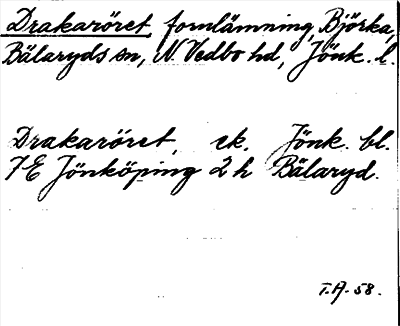 Drakaröret, fornlämning, Björka,
Bälaryds sn, N. Vedbo hd, Jönk. l.
Drakaröret, ek. Jönk. bl.
7E Jönköping 2 h Bälaryd.
T.A. 58.